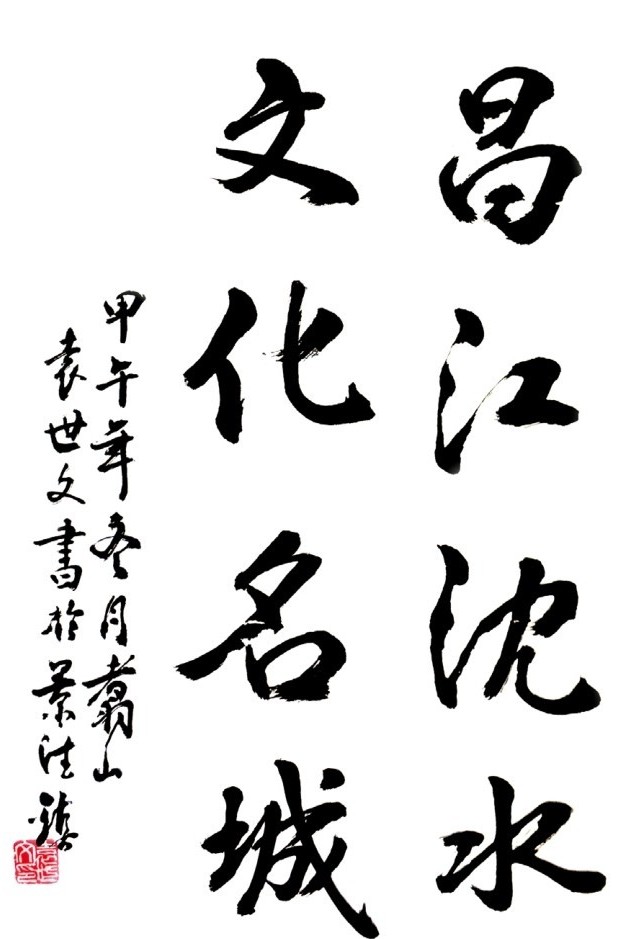 昌江沈水
文化名城
甲午年冬月翥山
袁世文書於景德鎮